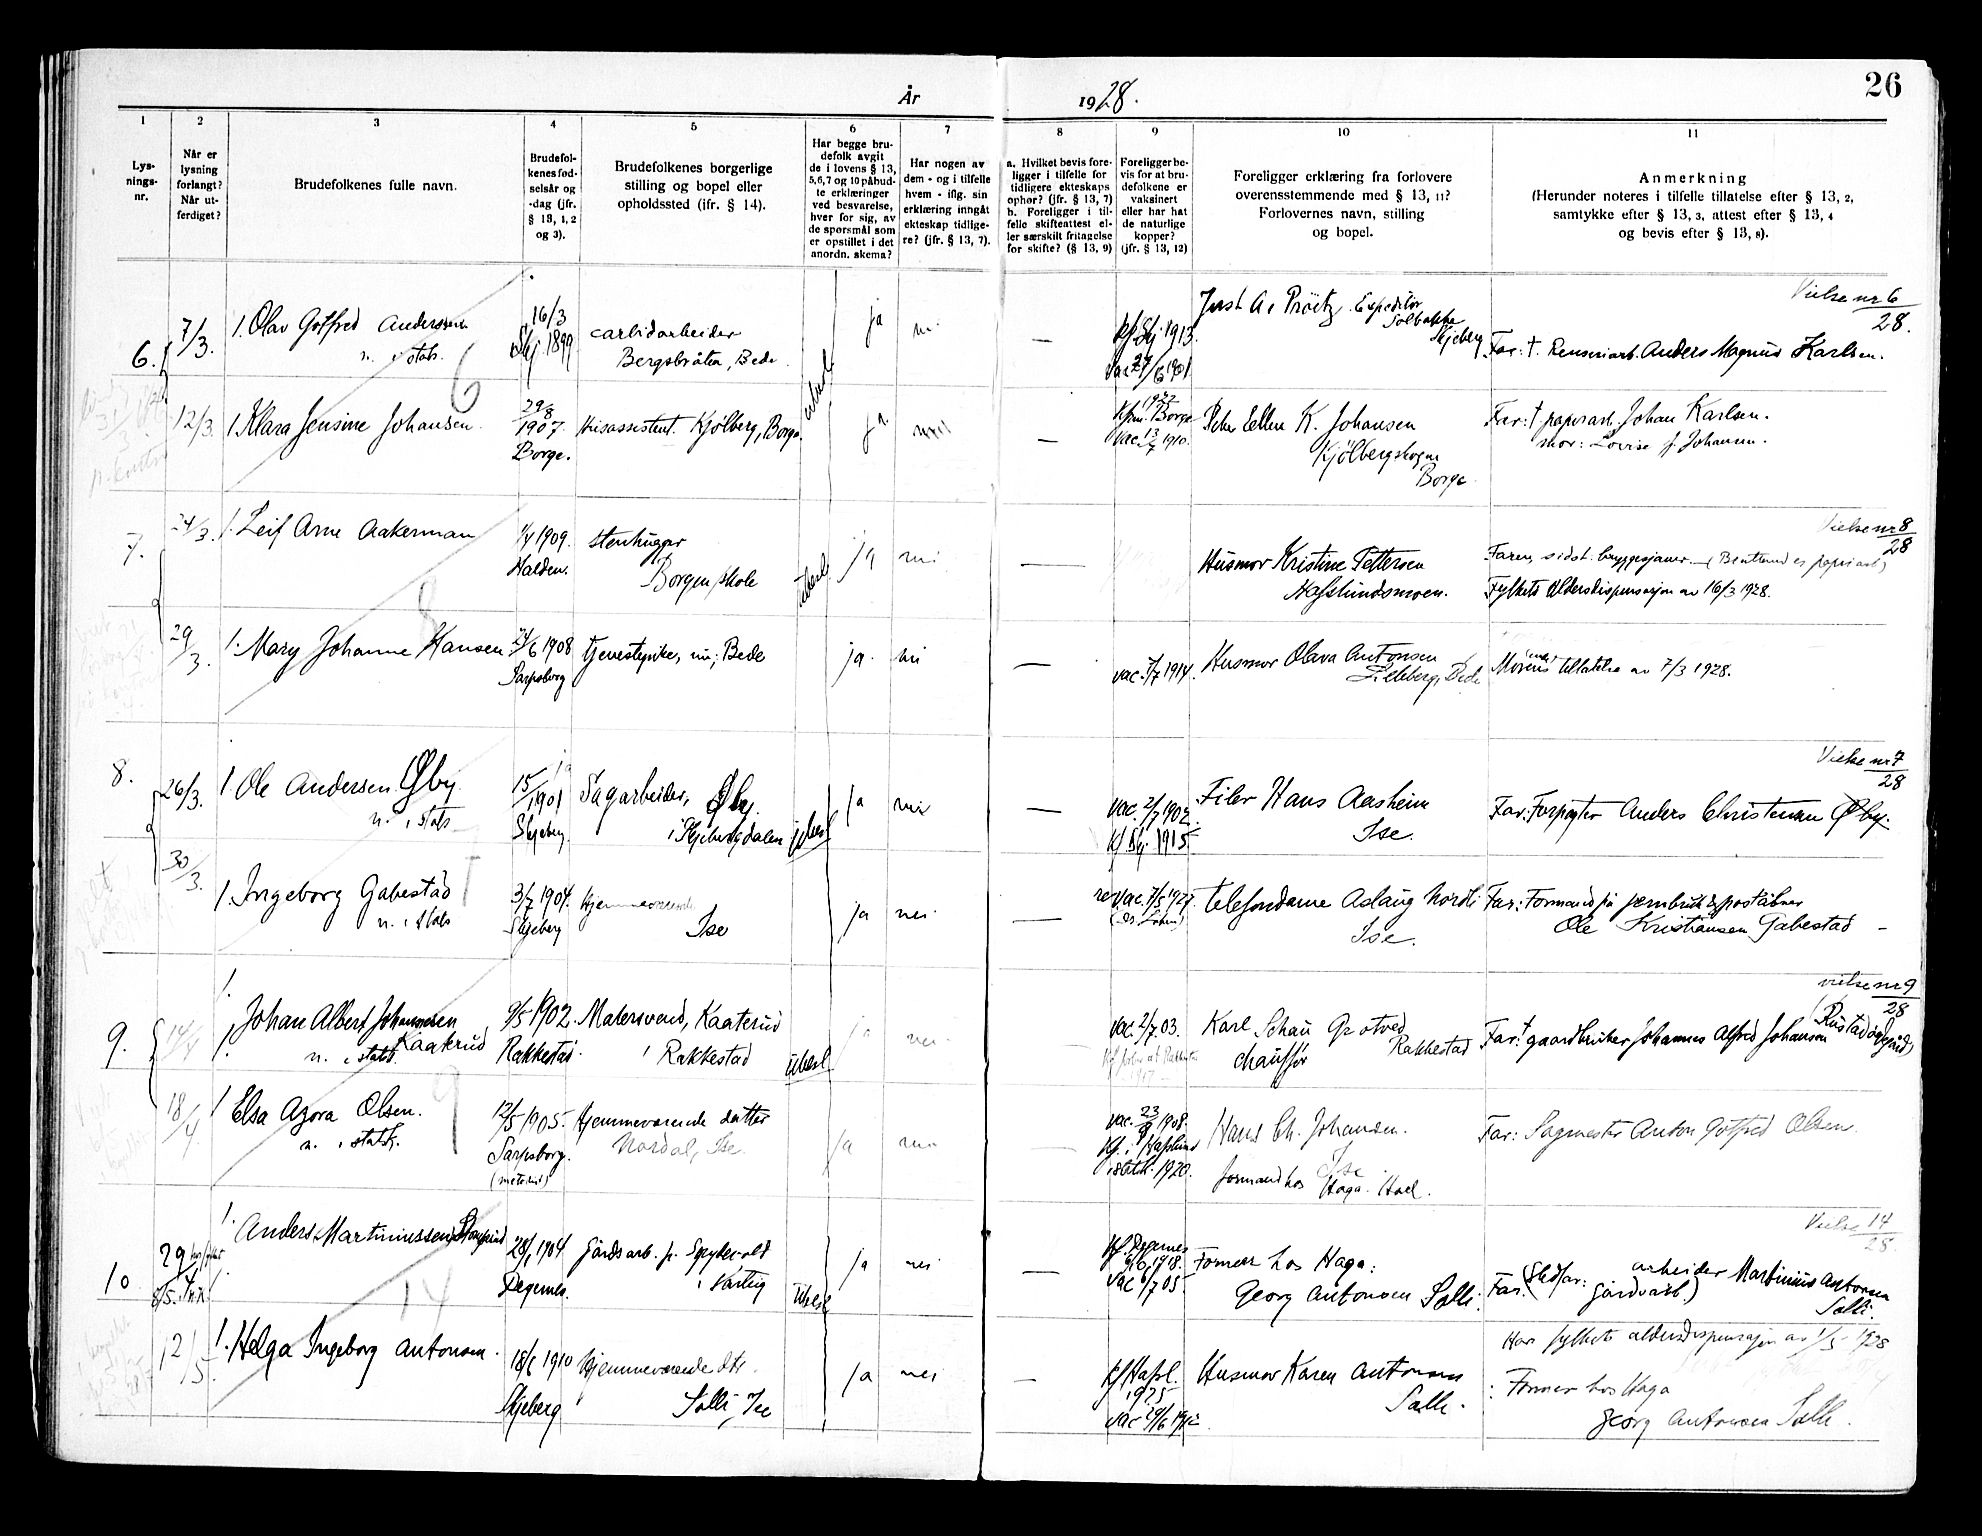 År 1928.
26
1 2 3 4 5 6 7 8 9 10 11
Lysnings-nr.
Når er lysning forlangt? Når utferdiget?
Brudefolkenes fulle navn.
Brudefolkenes fødselsår og -dag (jfr. § 13, 1, 2 og 3).
Brudefolkenes borgerlige stilling og bopel eller opholdssted (ifr. § 14).
Har begge brudefolk avgit de i lovens § 13, 5, 6, 7 og 10 påbudte erklæringer ved besvarelse, hver for sig, av de spørsmål som er opstillet i det anordn. skema?
Har nogen av dem - og i tilfelle hvem - iflg. sin erklæring inngåt ekteskap tidligere? (jfr. § 13, 7).
a. Hvilket bevis foreligger i tilfelle for tidligere ekteskaps ophør? (jfr. § 13, 7) b. Foreligger i tilfelle skifteattest eller særskilt fritagelse for skifte? (§ 13, 9)
Foreligger bevis for at brudefolkene er vaksinert eller har hat de naturlige kopper? (jfr. § 13, 12)
Foreligger erklæring fra forlovere overensstemmende med § 13, 11? Forlovernes navn, stilling og bopel.
Anmerkning
(Herunder noteres i tilfelle tillatelse efter § 13, 2,
samtykke efter § 13, 3, attest efter § 13, 4
og bevis efter § 13, 8).
Vielse nr 6
28.
6. 7/3. 1. Olav Gotfred Anderssen
n. i statsk.
16/3
Skj. 1899
carbidarbeider
Bergsbråten, Bede
ja nei
—
Kf. Skj. 1913.
Expeditør
Solbakke
Skjeberg
Far: †. Renseriarb. Anders Magnus Karlsen.
12/3. 1. Klara Jensine Johansen.
29/8
1907.
Borge.
Husassistent. Kjølberg, Borge.
ja
—
1922
Borge
vac. 13/7 1910.
Ellen K. Johansen
Kjölbergskogen
Borge
Far: † papirarb. Johan Karlsen.
mor: Lovise f. Johansen.
Vielse nr 8
28
7. 24/3. 1. Leif Arne Aakerman
1/4 1909.
Halden.
stenhugger
Borgen skole
ubesl.
ja nei
—
Husmor Kristine Pettersen
Hafslundsmoen.
Faren, sidst. bryggesjauer
Fylkets aldersdispensasjon av 16/3 1928.
29/3. 1. Mary Johanne Hansen
24/6 1908
Sarpsborg
tjenestepike, nu: Bede
ja. nei
—
vac. 7/7 1914.
Husmor Olava Antonsen
Lilleberg, Bede
Morens tillatelse av 7/3 1928.
Vielse nr 7
28
8. 26/3. 1. Ole Andersen Øby.
n. i stats
15/
1901
Skjeberg
Sagarbeider, Øby.
i Skjebergdalen
ubesl
ja nei
—
vac. 2/7 1902.
Kf Skj. 1915
Filer Hans Aasheim
Ise.
Far: Forpagter Anders Christensen Øby.
30/3. 1. Ingeborg Gabestad
n. i stats
3/7 1904.
Skjeberg
Hjemmeværende
Ise
ja nei.
—
telefondame Aslaug Nordli
Ise.
Far: Formand på jernbruk & poståbner
Ole Kristiansen Gabestad
vielse nr 9
28
9. 14/4 1. Johan Albert Johannesen
Kaaterud
n. i statsk.
9/5 1902.
Rakkestad.
Malersvend, Kaaterud
i Rakkestad
ubesl
ja nei.
vac. 2/7. 03.
Karl Schau Grotved
Rakkestad
chauffør
Far: † gaardbruker Johannes Alfred Johansen
18/4 1. Elsa Agora Olsen.
n. i statsk.
12/5 1905.
Sarpsborg.
(metodist)
Hjemmeværende datter
Nordal, Ise.
ja nei
—
vac. 23/9 1908.
Kf. i Hafslund
statsk. 1920.
Hans Ch. Johansen.
Ise
formand hos Haga. Hoel.
Far: Sagmester Anton Gotfred Olsen.
Vielse 14
28
10. 29/4
8/5.
1. Anders Martiniussen
28/1 1904
Degernes.
Gårdsarb. p.
i Varteig
Ubesl
ja nei
—
Kf. Degernes
1918.
vac 6/7 05.
Former hos Haga:
Georg Antonsen Solli.
Far. (Stedfar: arbeider Martinius Antonsen
gårdsarb)
Solli.
12/5. 1. Helga Ingeborg Antonsen.
18/6 1910
Skjeberg
Hjemmeværende dtr.
Solli, Ise
ja nei
—
Kf Hafsl.
1925
Husmor Karen Antonsen
Solli.
Har fylkets aldersdispensasjon av 1/3 1928
: Former hos Haga
Georg Antonsen Solli.